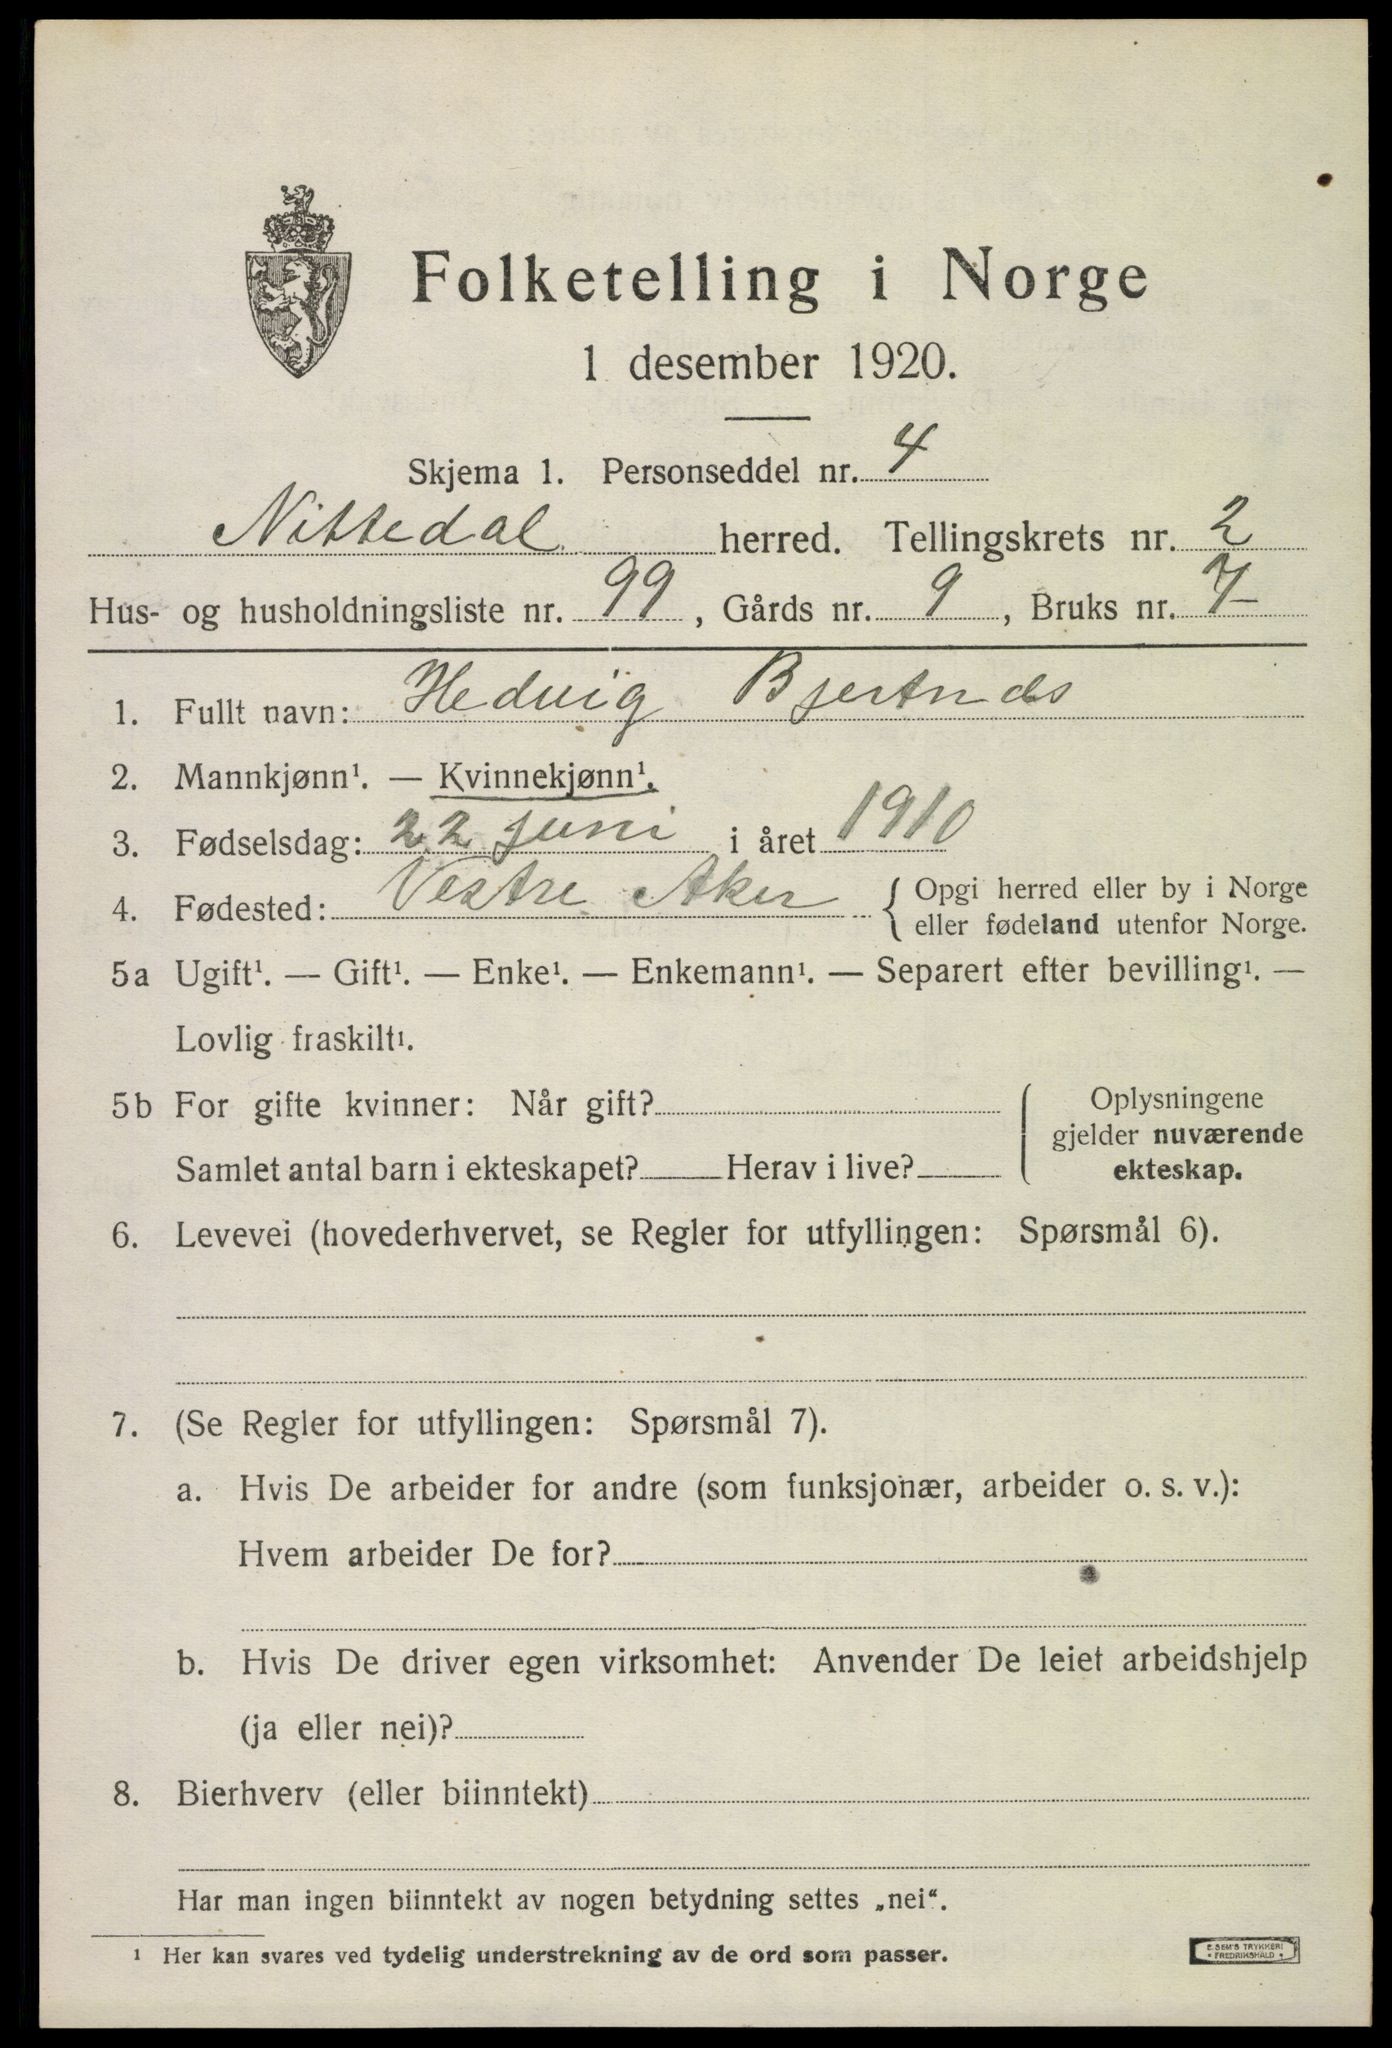 Folketelling i Norge
1 desember 1920.
Skjema 1. Personseddel nr. 4
Nittedal herred. Tellingskrets nr. 2
Hus- og husholdningsliste nr. 99, Gårds nr. 9, Bruks nr. 7
1. Fullt navn: Hedvig Bjertnds
2. Mannkjønn¹. — Kvinnekjønn¹.
3. Fødselsdag: 22 juni i året 1910
4. Fødested: Vestre Aker { Opgi herred eller by i Norge
eller fødeland utenfor Norge.
5a Ugift¹. — Gift¹. — Enke¹. — Enkemann¹. — Separert efter bevilling¹. —
Lovlig fraskilt¹.
5b For gifte kvinner: Når gift?
Samlet antal barn i ekteskapet? Herav i live?
Oplysningene
gjelder nuværende
ekteskap.
6. Levevei (hovederhvervet, se Regler for utfyllingen: Spørsmål 6).
7. (Se Regler for utfyllingen: Spørsmål 7).
a. Hvis De arbeider for andre (som funksjonær, arbeider o. s. v.):
Hvem arbeider De for?
b. Hvis De driver egen virksomhet: Anvender De leiet arbeidshjelp
(ja eller nei)?
8. Bierhverv (eller biinntekt)
Har man ingen biinntekt av nogen betydning settes „nei“.
¹ Her kan svares ved tydelig understrekning av de ord som passer.
E. SEM'S TRYKKERI
• FREDRIKSHALD •